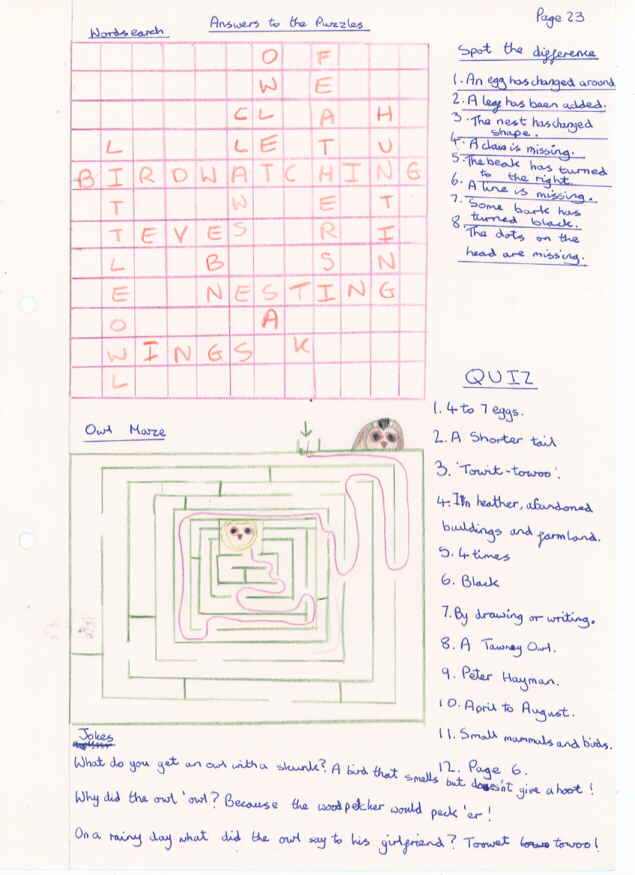 Page 23
Answers to the Puzzles
Wordsearch
O F
W E
C L A H
L L E T U
B I R D W A T C H I N G
T W E T
T E V E S R I
L B S N
E N E S T I N G
O A
W I N G S K
L
Spot the difference
1. An egg has changed around
2. A leg has been added.
3. The nest has changed
shape.
4. A claw is missing.
5. The beak has turned
to the right.
6. A line is missing.
7. Some bark has
turned black.
8. The dots on the
head are missing.
QUIZ
1. 4 to 7 eggs.
2. A Shorter tail
3. 'Towit-towoo'.
4. In heather, abandoned
buildings and farmland.
5. 4 times
6. Black
7. By drawing or writing.
8. A Tawney Owl.
9. Peter Hayman.
10. April to August.
11. Small mammals and birds.
12. Page 6.
Owl Maze
Jokes
What do you get an owl with a skunk? A bird that smells but doesn't give a hoot!
Why did the owl 'owl? Because the woodpecker would peck 'er!
On a rainy day what did the owl say to his girlfriend? Toowet towoo!